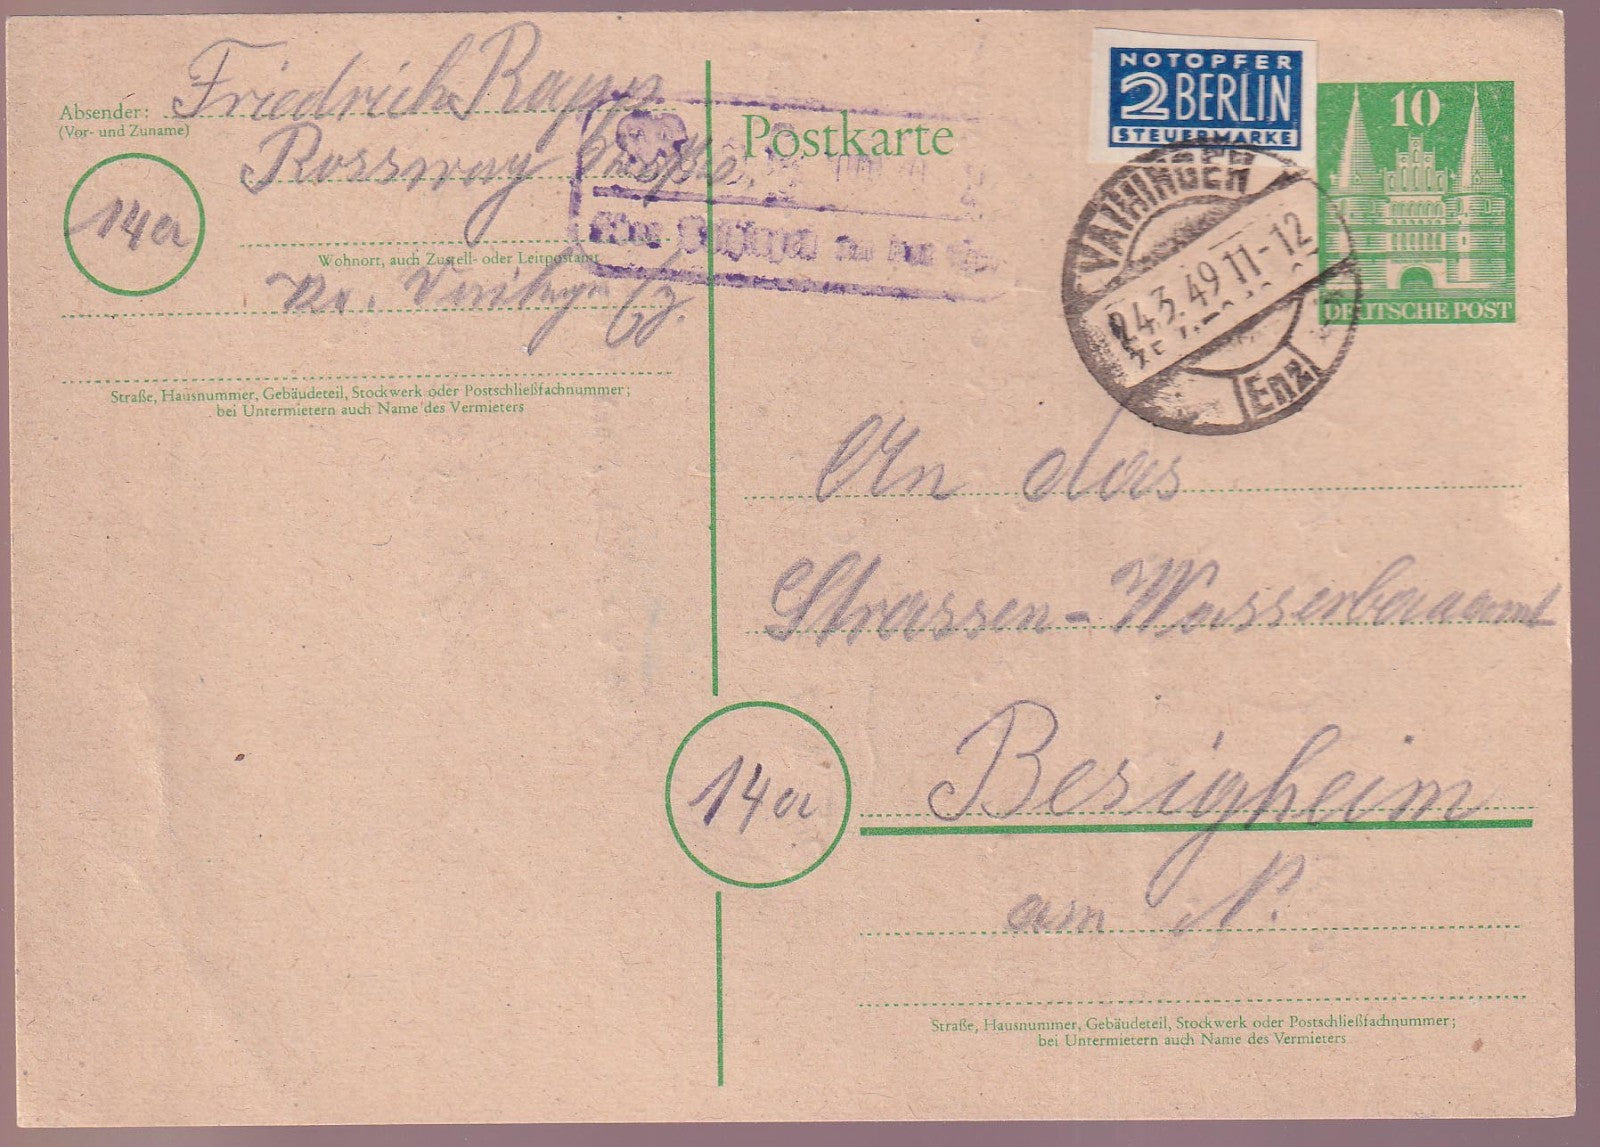 Absender: Friedrich Rapp
(Vor- und Zuname)
Rossway
14a
Wohnort, auch Zustell- oder Leitpostamt
Straße, Hausnummer, Gebäudeteil, Stockwerk oder Postschließfachnummer;
bei Untermietern auch Name des Vermieters
Postkarte
NOTOPFER
2 BERLIN
STEUERMARKE
10
DEUTSCHE POST
VAIHINGEN
24.3.49 11-12
Enz
An das
Strassen-Wasserbauamt
14a
Besigheim
am N.
Straße, Hausnummer, Gebäudeteil, Stockwerk oder Postschließfachnummer;
bei Untermietern auch Name des Vermieters